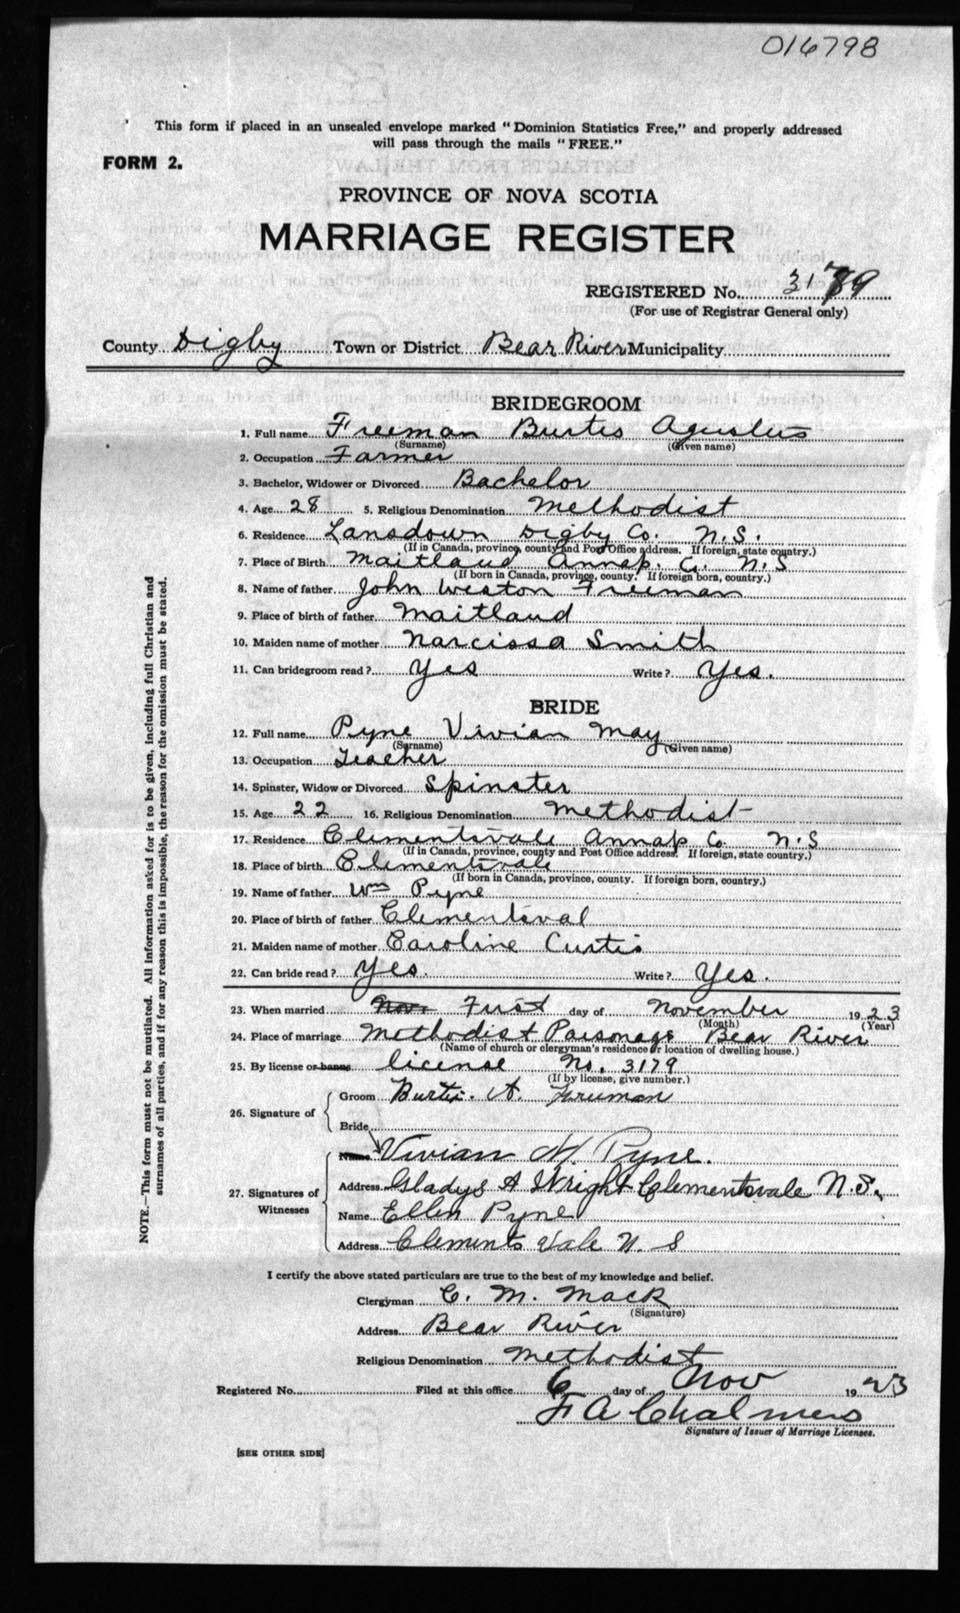 016798
This form if placed in an unsealed envelope marked "Dominion Statistics Free," and properly addressed
will pass through the mails "FREE."
FORM 2.
PROVINCE OF NOVA SCOTIA
MARRIAGE REGISTER
REGISTERED No. 3179
(For use of Registrar General only)
County Digby Town or District Bear River Municipality
BRIDEGROOM
1. Full name Freeman Burtis Agustus
(Surname) (Given name)
2. Occupation Farmer
3. Bachelor, Widower or Divorced Bachelor
4. Age 28 5. Religious Denomination Methodist
6. Residence Lansdown Digby Co. N.S.
(If in Canada, province, county and Post Office address. If foreign, state country.)
7. Place of Birth Maitland Annap. Co. N.S
(If born in Canada, province, county. If foreign born, country.)
8. Name of father John Weston Freeman
9. Place of birth of father Maitland
10. Maiden name of mother Narcissa Smith
11. Can bridegroom read? Yes Write? Yes.
BRIDE
12. Full name Pyne Vivian May
(Surname) (Given name)
13. Occupation Teacher
14. Spinster, Widow or Divorced Spinster
15. Age 22 16. Religious Denomination Methodist
17. Residence Clementsvale Annap Co. N.S
(If in Canada, province, county and Post Office address. If foreign, state country.)
18. Place of birth Clementsvale
(If born in Canada, province, county. If foreign born, country.)
19. Name of father Wm Pyne
20. Place of birth of father Clementsval
21. Maiden name of mother Caroline Curtis
22. Can bride read? Yes. Write? Yes.
23. When married Nov. First day of November 1923
(Month) (Year)
24. Place of marriage Methodist Parsonage Bear River
(Name of church or clergyman's residence or location of dwelling house.)
25. By license or banns license No. 3179
(If by license, give number.)
26. Signature of Groom Burtis. A. Freeman
Bride
Name Vivian M. Pyne.
27. Signatures of Witnesses Address Gladys A Wright Clementsvale N.S.
Name Ellen Pyne
Address Clements Vale N. S
I certify the above stated particulars are true to the best of my knowledge and belief.
Clergyman C. M. Mack
(Signature)
Address Bear River
Religious Denomination Methodist
Registered No. Filed at this office 6 day of Nov 1923
F A Chalmers
Signature of Issuer of Marriage Licenses.
[SEE OTHER SIDE]
NOTE.—This form must not be mutilated. All information asked for is to be given, including full Christian and
surnames of all parties, and if for any reason this is impossible, the reason for the omission must be stated.